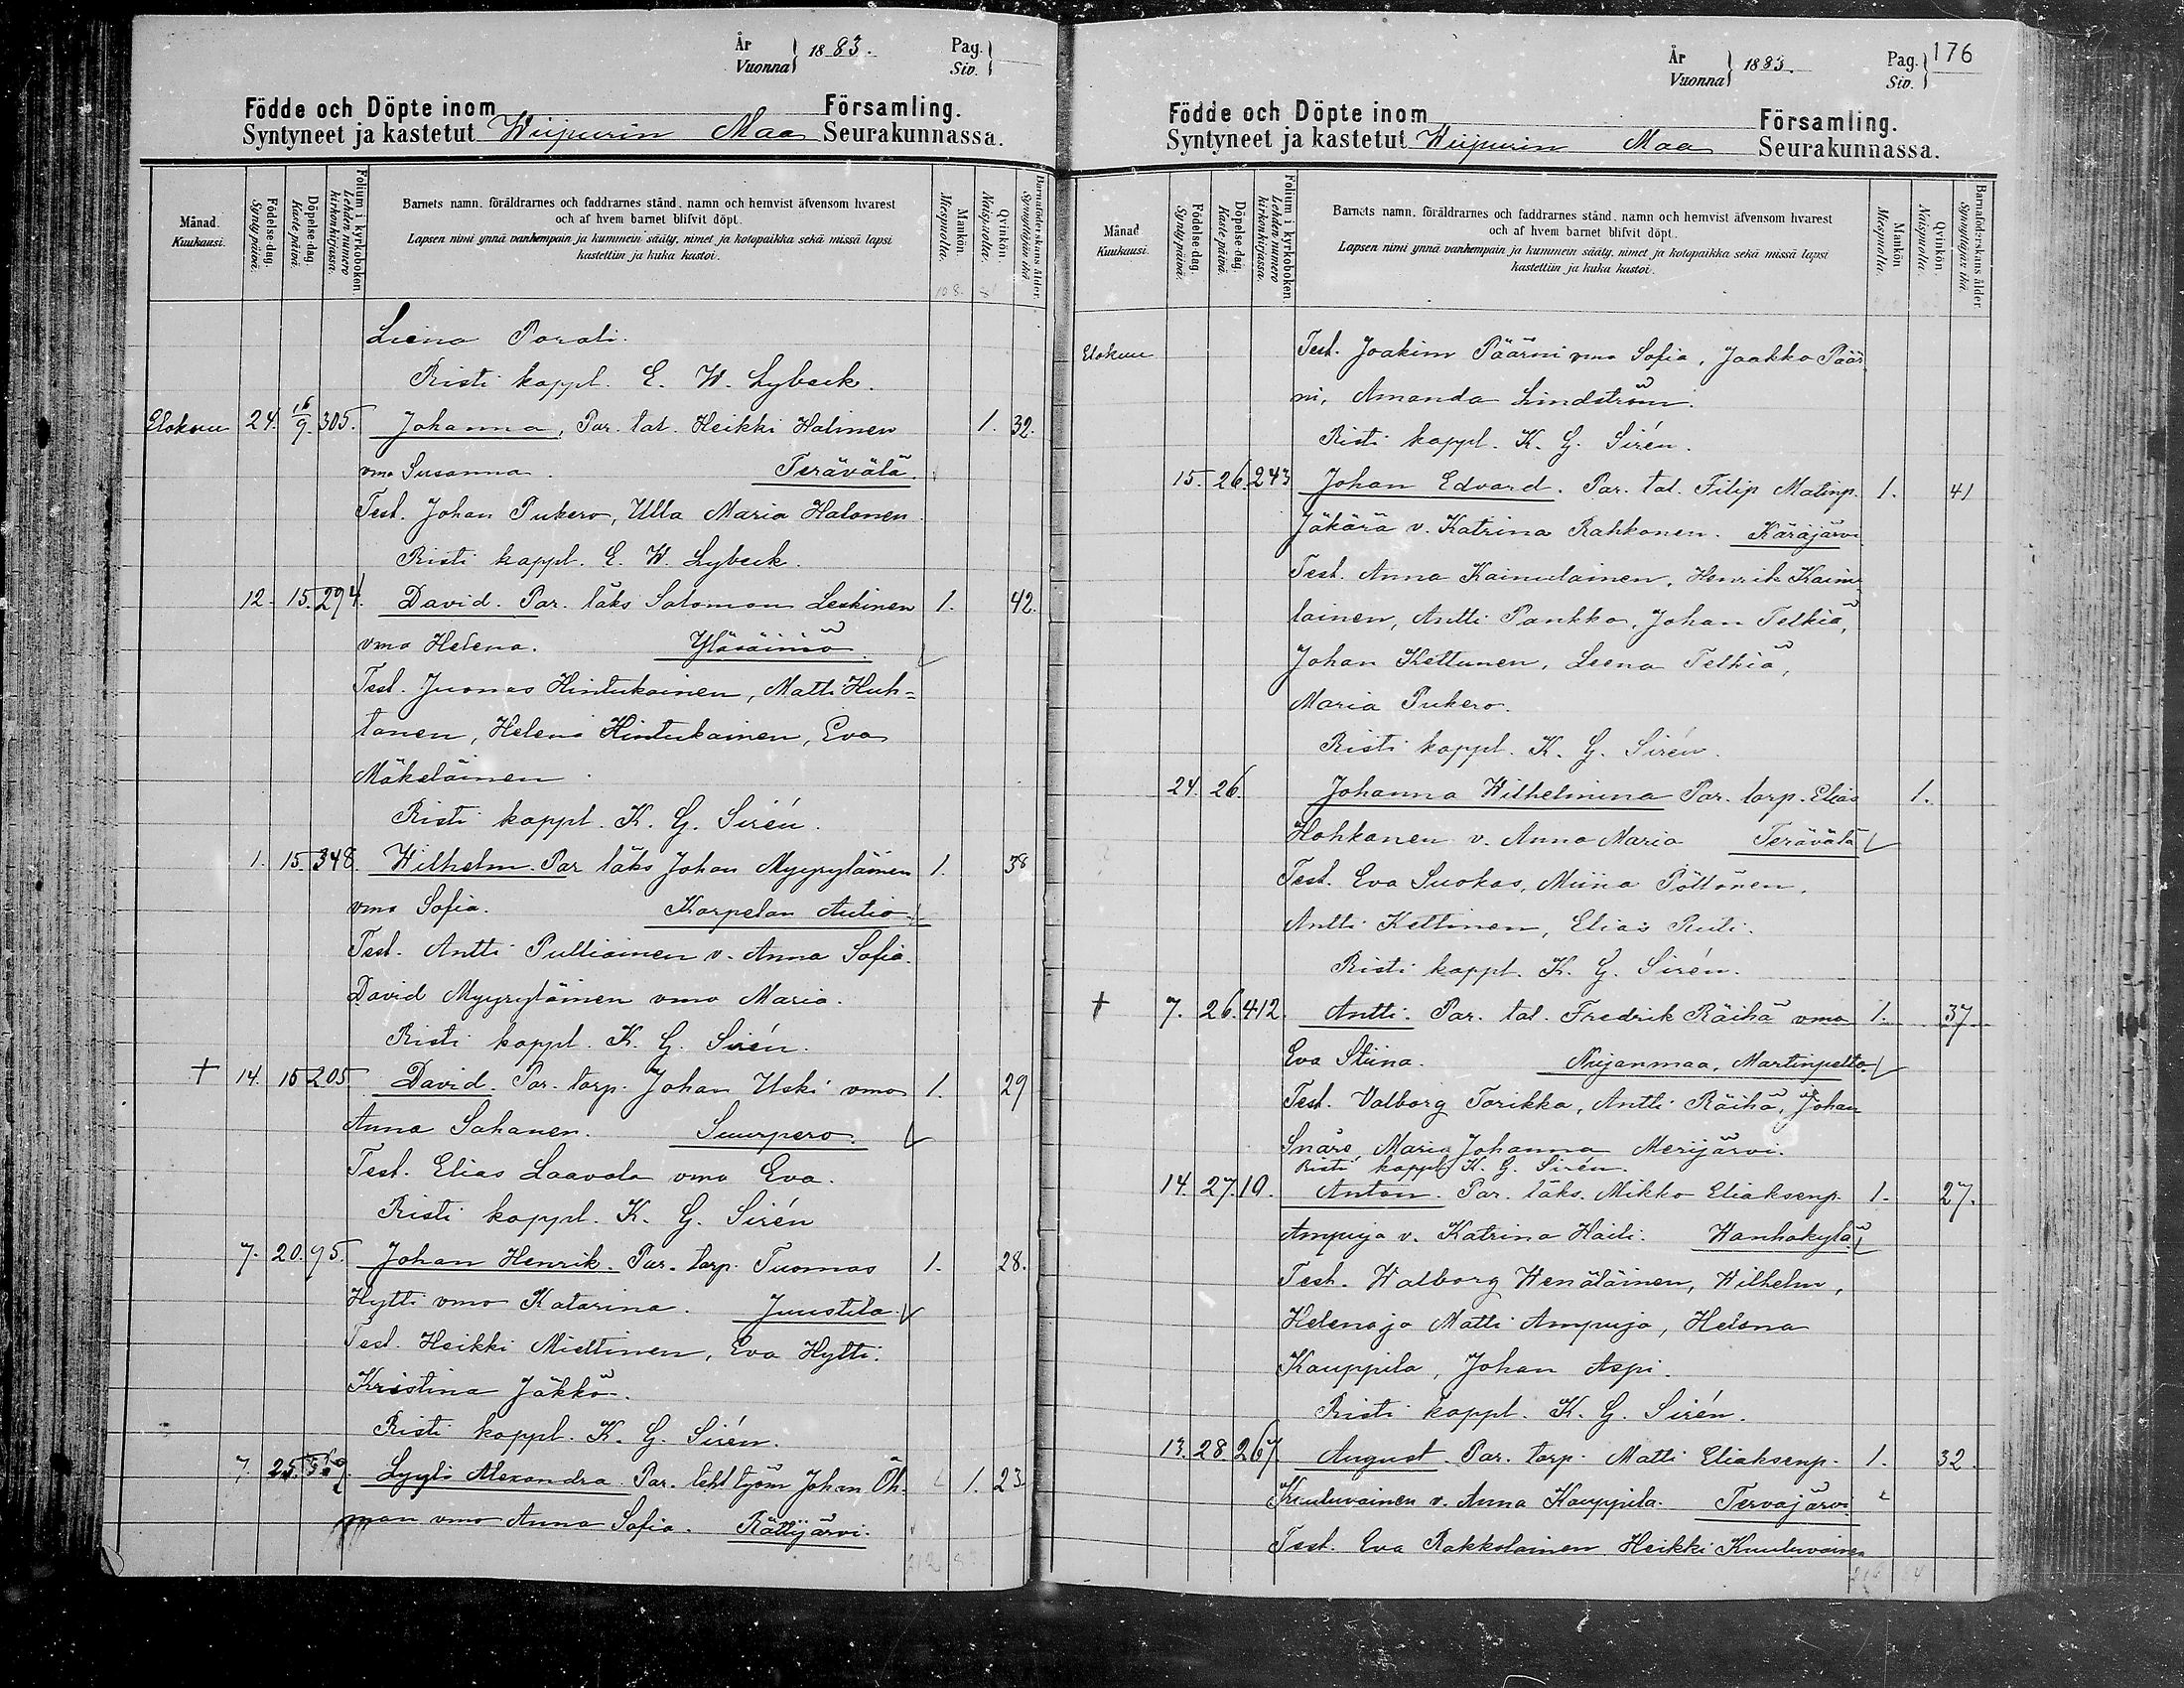 År
Vuonna } 1883.
Pag.
Siv. }
Födde och Döpte inom Församling.
Syntyneet ja kastetut Wiipurin Maa Seurakunnassa.
Månad. Kuukausi.
Födelse-dag. Synty päivä.
Döpelse-dag. Kaste päivä.
Folium i kyrkoboken. Lehden numero kirkonkirjassa.
Barnets namn, föräldrarnes och faddrarnes stånd, namn och hemvist äfvensom hvarest
och af hvem barnet blifvit döpt.
Lapsen nimi ynnä vanhempain ja kummein sääty, nimet ja kotopaikka sekä missä lapsi
kastettiin ja kuka kastoi.
Mankön. Miespuolta.
Qvinkön. Naispuolta.
Barnaföderskans ålder. Synnyttäjän ikä.
Liena Porali.
Risti kappl. E. W. Lybeck.
Elokuu 24. 16/9. 305. Johanna, Par. tal. Heikki Halinen 1. 32.
vmo Susanna. Terävälä.
Test. Johan Pukero, Ulla Maria Halonen
Risti kappl. E. W. Lybeck.
12. 15. 294. David. Par. läks Salomon Leskinen 1. 42.
vmo Helena. Yläsäiniö.
Test. Juonas Hintukainen, Matti Huh-
tanen, Helena Hintukainen, Eva
Mäkeläinen.
Risti kappl. K. G. Sirén.
1. 15. 348. Wilhelm. Par läks Johan Myyryläinen 1. 38
vmo Sofia. Karpelan Autio
Test. Antti Pulliainen v. Anna Sofia.
David Myyryläinen vmo Maria.
Risti kappl. K. G. Sirén.
+ 14. 15 205 David. Par. torp. Johan Uski vmo 1. 29
Anna Sahanen. Suurpero.
Test. Elias Laavola vmo Eva.
Risti kappl. K. G. Sirén
7. 20. 95. Johan Henrik. Par. torp. Tuomas 1. 28.
Hytti vmo Katarina. Juustila.
Test. Heikki Miettinen, Eva Hytti.
Kristina Jäkkö.
Risti kappl. K. G. Sirén.
7. 25. Lyyli Alexandra. Par. teht työm Johan Öh- 1. 23.
man vmo Anna Sofia. Rättijärvi.
År
Vuonna } 1883.
Pag.
Siv. } 176
Födde och Döpte inom Församling.
Syntyneet ja kastetut Wiipurin Maa Seurakunnassa.
Månad Kuukausi.
Födelse-dag. Synty päivä.
Döpelse-dag. Kaste päivä.
Folium i kyrkoboken. Lehden numero kirkonkirjassa.
Barnets namn, föräldrarnes och faddrarnes stånd, namn och hemvist äfvensom hvarest
och af hvem barnet blifvit döpt.
Lapsen nimi ynnä vanhempain ja kummein sääty, nimet ja kotopaikka sekä missä lapsi
kastettiin ja kuka kastoi.
Mankön Miespuolta.
Qvinkön Naispuolta.
Barnaföderskans ålder. Synnyttäjän ikä.
Elokuu Test. Joakim Päärni vmo Sofia, Jaakko Päär
ni, Amanda Lindström.
Risti kappl. K. G. Sirén.
15. 26. 243 Johan Edvard. Par. tal. Filip Matinp. 1. 41
Jäkärä v. Katrina Rahkonen. Käräjärvi
Test. Anna Kainulainen, Henrik Kainu
lainen, Antti Pankko, Johan Telkiä,
Johan Kettunen, Leena Telkiä,
Maria Pukero.
Risti kappl. K. G. Sirén.
24. 26. Johanna Wilhelmina Par. torp. Elias 1.
Hohkanen v. Anna Maria Terävälä
Test. Eva Suokas, Miina Pöllönen.
Antti Kettinen, Elias Ruti.
Risti kappl. K. G. Sirén.
+ 7. 26. 412. Antti. Par. tal. Fredrik Räihä vmo 1. 37
Eva Stiina. Nuijanmaa, Martinpelto.
Test. Valborg Torikka, Antti Räihä, Johan
Snäre, Maria Johanna Merijärvi.
Risti kappl. K. G. Sirén.
14. 27. 10. Anton. Par. läks. Mikko Eliaksenp. 1. 27.
Ampuja v. Katrina Haili. Wanhakylä
Test. Walborg Wenäläinen, Wilhelm,
Helena ja Matti Ampuja, Helena
Kauppila, Johan Aspi.
Risti kappl. K. G. Sirén.
13. 28. 267. August. Par. torp. Matti Eliaksenp. 1. 32.
Kuuluvainen v. Anna Kauppila. Tervajärvi
Test. Eva Rakkolainen Heikki Kuuluvainen